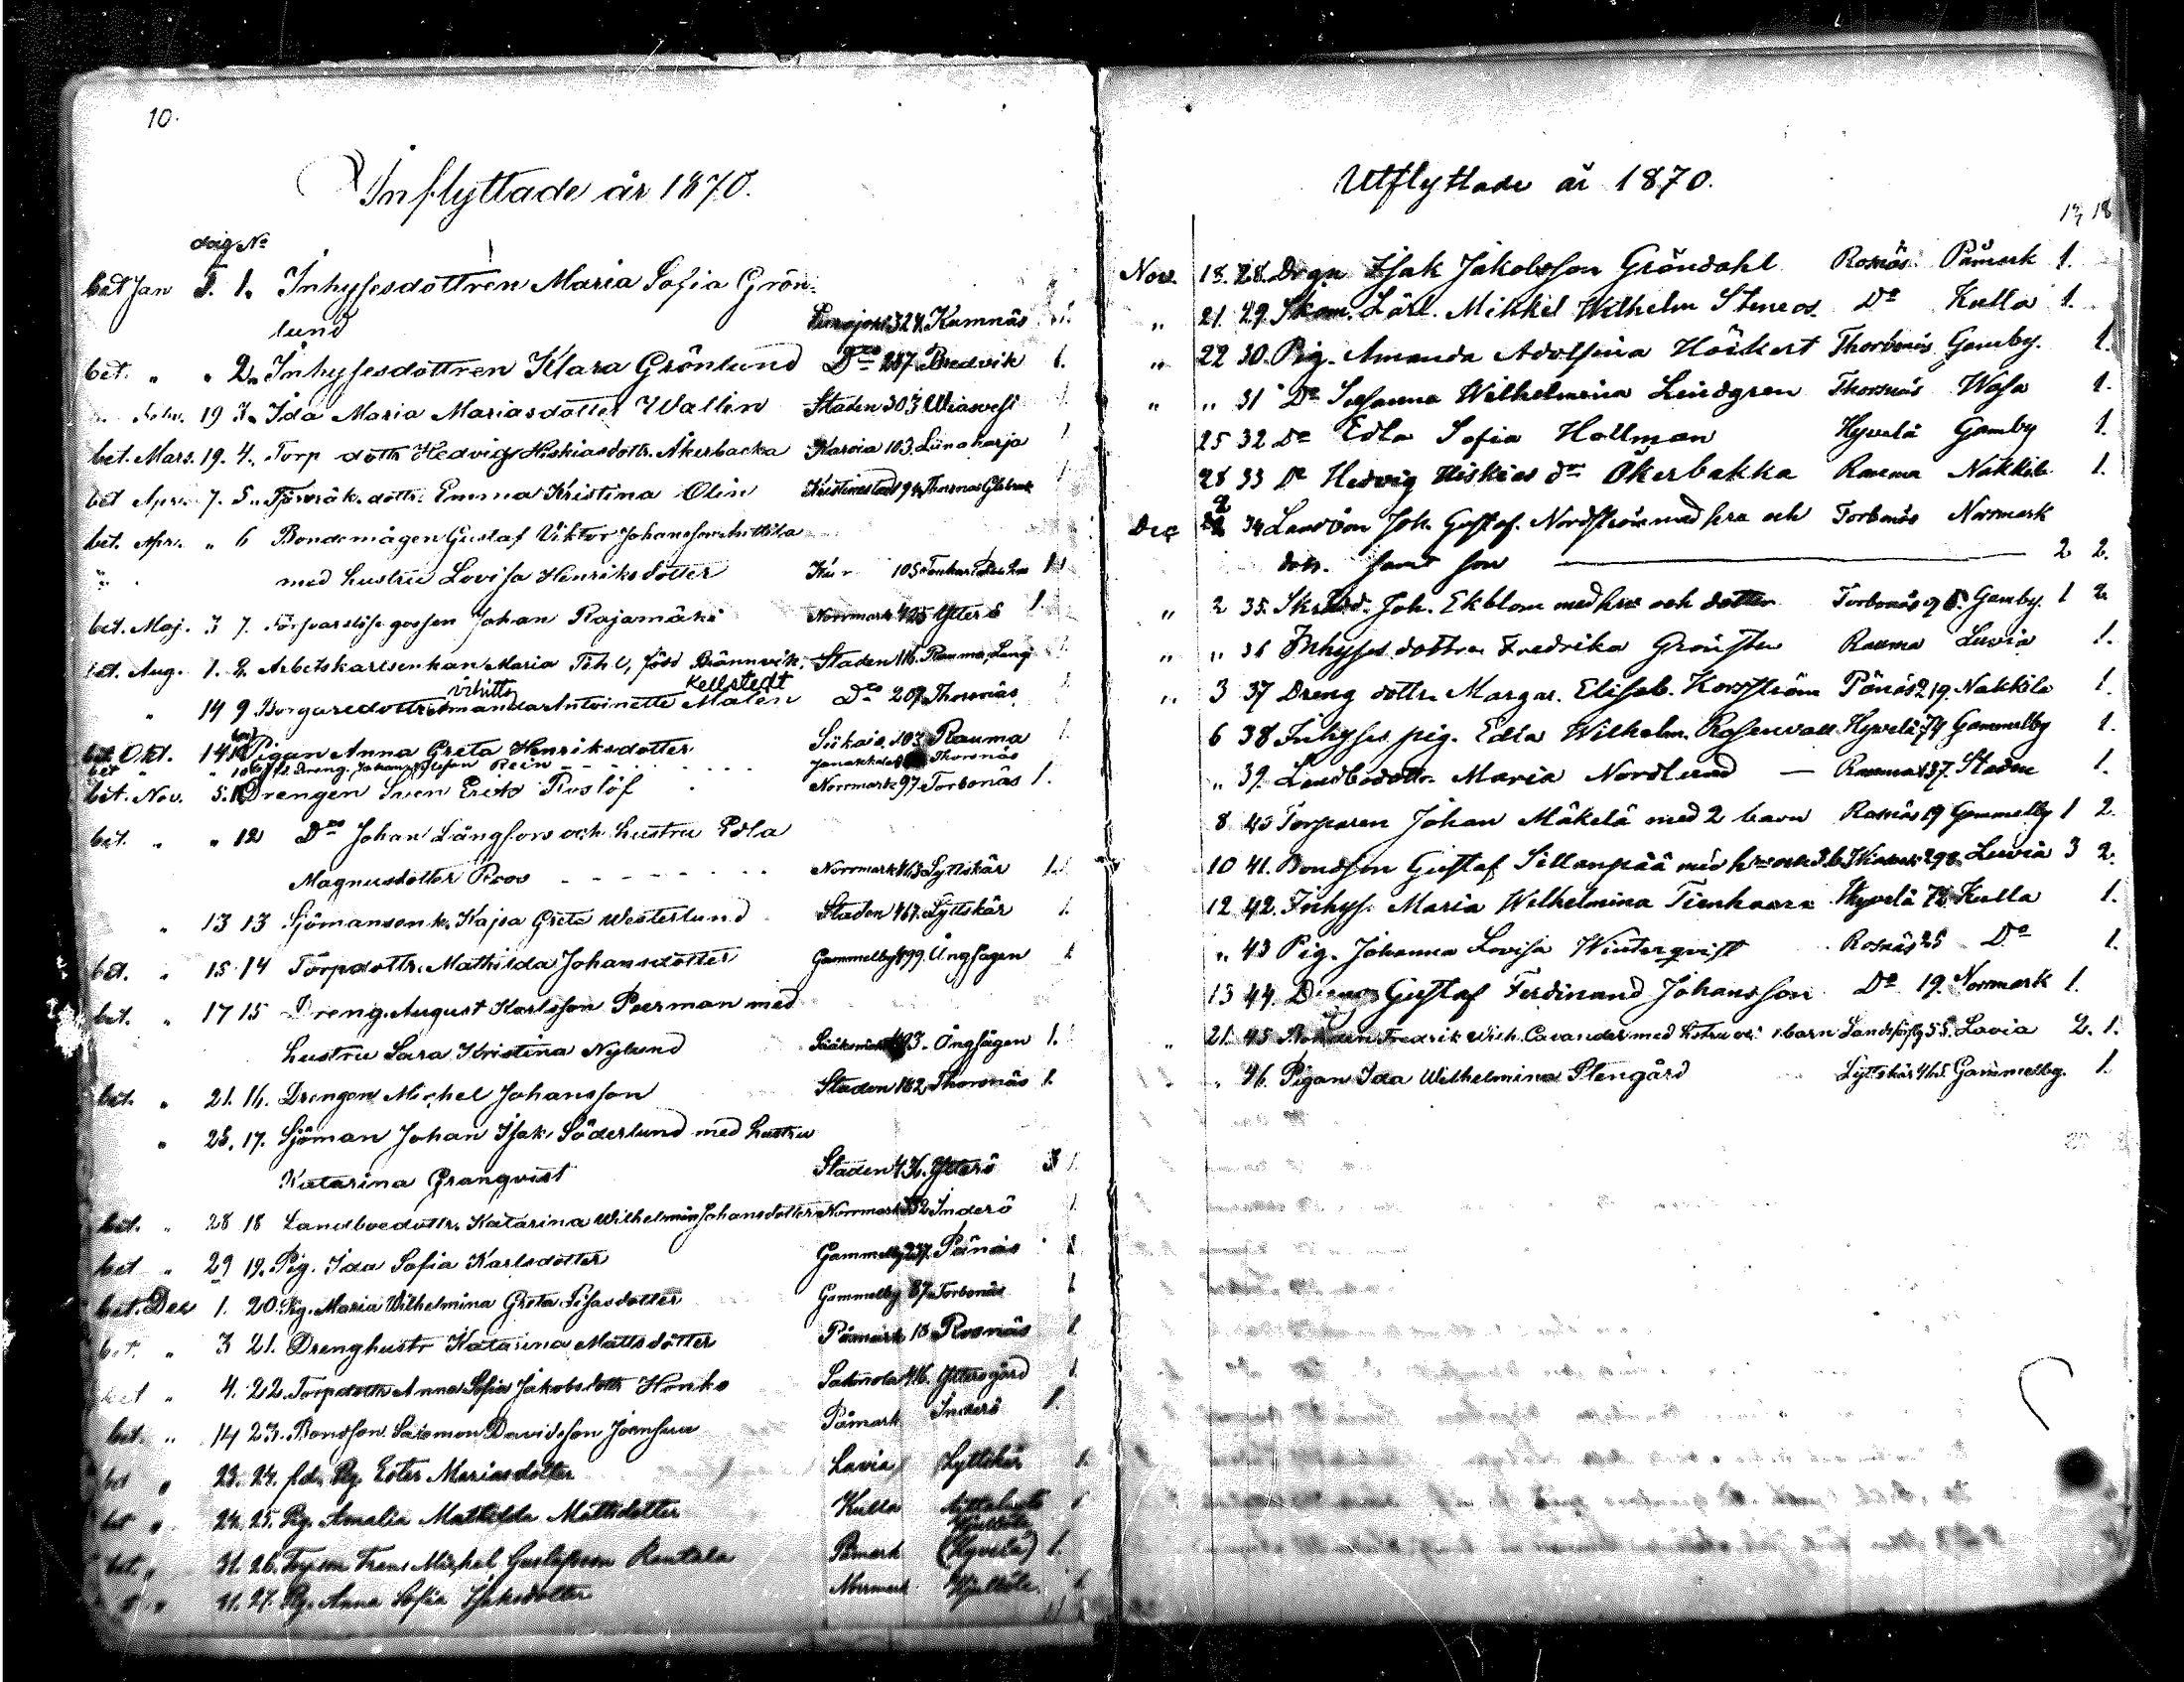 10.
Inflyttade år 1870.
dag No
bet Jan 5. 1. Inhysesdottren Maria Sofia Grön-
lund 324. Kumnäs
bet. " " 2. Inhysesdottren Klara Grönlund Dto 287 Bredvik 1.
" Febr. 19 3. Ida Maria Mariasdotter Wallin Staden 303 Wiasvesi 1
bet. Mars. 19. 4. Torp dottr Hedvig Hiskiasdottr. Åkerbacka Karvia 103. Linaharja 1
bet Apr. 7. 5. dottr. Emma Kristina Olin Kristinestad
bet. Apr. " 6 Bondemågen Gustaf Viktor Johansson Anttila
" med hustru Lovisa Henriksdotter 105
bet. Maj. 3 7. gossen Johan Rajamäki Norrmark 425 Ytterö 1.
bet. Aug. 1. 8. Arbetskarlsenkan Maria född Brännvik. Staden 116.
vihitty Kellstedt
" 14 9 Borgaredottr. Amanda Antoinette Malen Dto 207 Thorsnäs
bet. Okt. 14 10 Pigan Anna Greta Henriksdotter Siikais. 103 Rauma 1
bet " " Dreng. Johan Rein Thorsnäs
bet. Nov. 5. 11 Drengen Sven Erik Roslöf Norrmark 97. Torbonäs 1.
bet. " " 12 Dto Johan Långfors och hustru Edla
Magnusdotter Roos Norrmark 163 Lyttskär 1.
" 13 13 Sjömansenk. Kajsa Greta Westerlund Staden 467. Lyttskär 1.
bet. " 15 14 Torpdottr. Mathilda Johansdotter Gammelby 499. Ångsågen 1
bet. " 17 15 Dreng. August Karlsson Peerman med
hustru Sara Kristina Nylund Ångsågen 1.
bet. " 21. 16. Drengen Michel Johansson Staden 162. Thorsnäs 1.
" 25. 17. Sjöman Johan Isak Söderlund med hustru
Katarina Granqvist Staden 436. Ytterö 3 1.
bet. " 28 18 Landboedottr. Katarina Wilhelmin Johansdotter Norrmark Inderö 1
bet " 29 19. Pig. Ida Sofia Karlsdotter Gammelby 237. Pånäs 1
bet. Dec 1. 20. Pig. Maria Wilhelmina Greta Lisasdotter Gammelby 87. Torbonäs 1
bet. " 3 21. Drenghustr Katarina Mattsdotter Påmark 18 Rosnäs 1
bet " 4. 22. Torpdottr Anna Sofia Jakobsdottr Honko 416. Ytterögård 1.
bet. " 14 23. Bondson. Salomon Davidsson Påmark Inderö 1.
bet " 23. 24. Pig. Ester Mariasdotter Lavia Lyttskär 1.
bet " 24. 25. Pig. Amalia Mathilda Mattsdotter Kulla
bet. " 31. 26. Frans Michel Gustafsson Rentala Påmark (Hyvelä) 1.
" " 31. 27. Pig. Anna Sofia Isaksdotter Norrmark
Utflyttade år 1870.
Nov. 18. 28. Drgn Isak Jakobsson Gröndahl Rosnäs Påmark 1.
" 21. 29. Skom. Lärl. Mikkel Wilhelm Steneos Do Kulla 1.
" 22 30. Pig. Amanda Adolfina Höckert Thorbonäs Gamby. 1.
" " 31 Do Susanna Wilhelmina Lindgren Thorsnäs Wasa 1.
25 32 Do Edla Sofia Hollman Hyvelä Gamby 1.
28 33 Do Hedvig Hiskias dr Åkerbakka Rauma Nakkila 1.
Dec 2 34 Joh. Gustaf. Nordström med hru och Torbonäs Norrmark
dotr. samt son 2 2.
" 2 35. Joh. Ekblom med hru och dotter Torbonäs Gamby. 1 2
" " 36 Inhyses dottren Fredrika Rauma Luvia 1.
" 3 37 Dreng dottr. Margar. Elisab. Korsström Pånäs 219. Nakkila 1.
6 38 Inhyses pig. Edla Wilhelm. Rosenvall Hyvelä 79 Gammelby 1.
" 39. Landbodottr. Maria Nordlund — Rauma 437. Staden 1.
8 40 Torparen Johan Mäkelä med 2 barn Rosnäs 19 Gammelby 1 2.
10 41. Bondson Gustaf Sillanpää med 298 Luvia 3 2.
12 42. Inhys. Maria Wilhelmina Tienhaara Hyvelä 78 Kulla 1.
" 43 Pig. Johanna Lovisa Winterqvist Rosnäs 25 Do 1.
13 44. Dreng Gustaf Ferdinand Johansson Do 19. Norrmark 1.
" 21. 45 Fredrik Wilh. Cavander med hstru och 1 barn 55. Lavia 2. 1.
" 46. Pigan Ida Wilhelmina Stengård Lyttskär 465 Gammelby. 1.